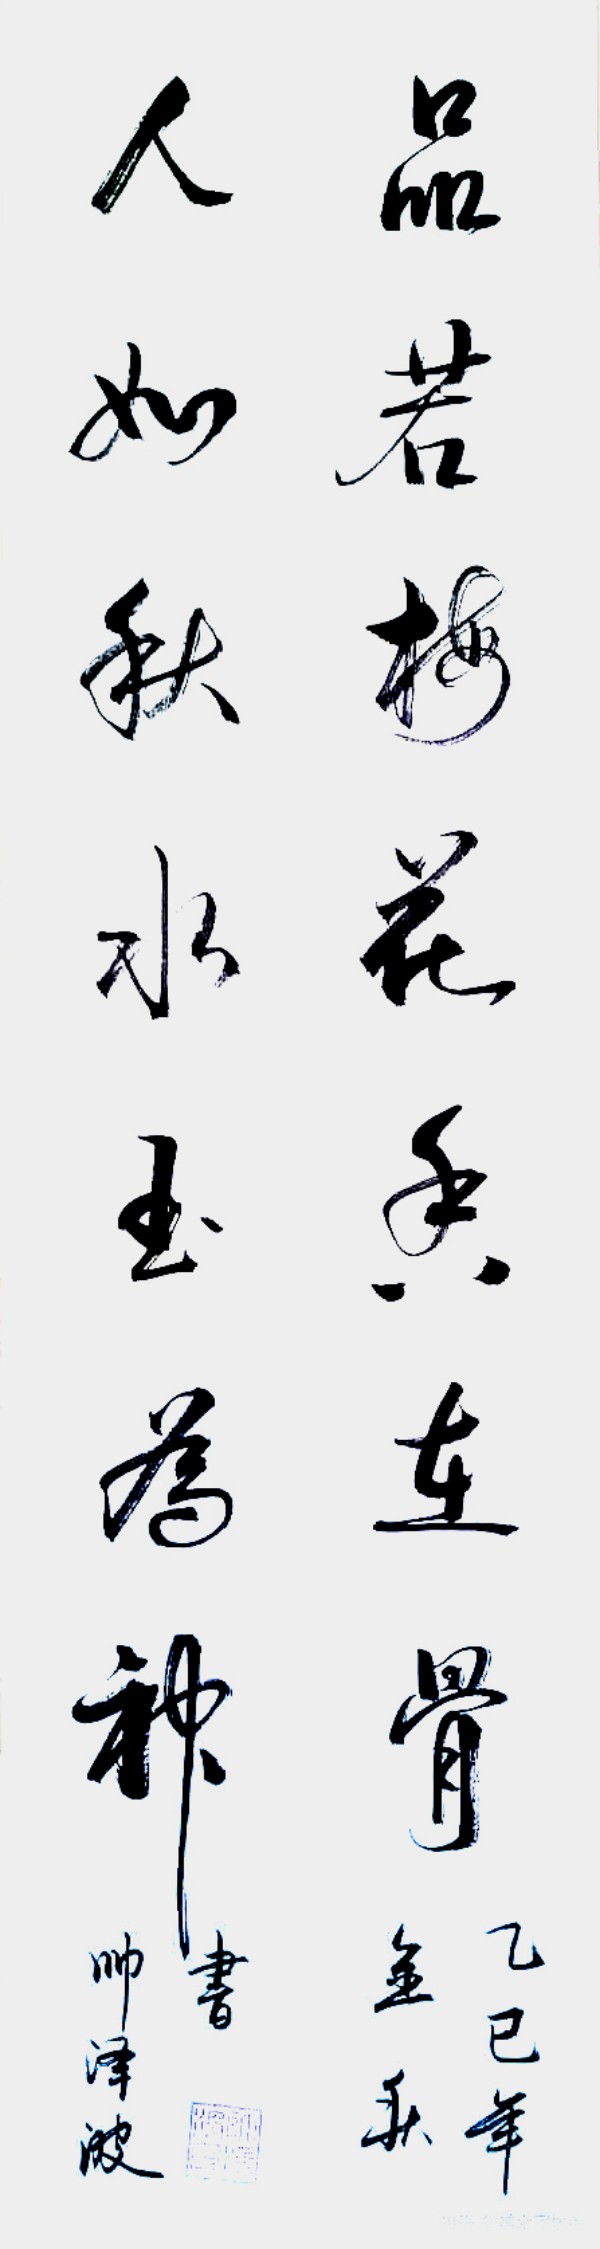 品若梅花香在骨
人如秋水玉為神
乙巳年
金秋
書
帅泽波